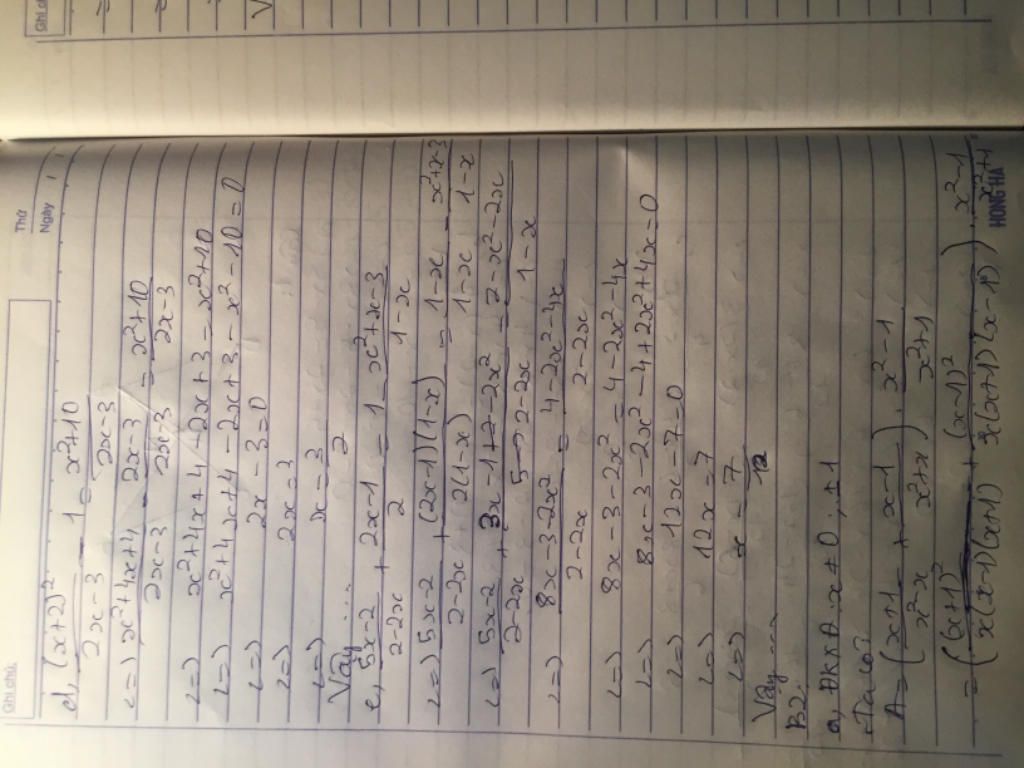 Ghi chú:
Thứ
Ngày
d, (x+2)²/(2x-3) - 1 = (x²+10)/(2x-3)
<=> (x²+4x+4)/(2x-3) - (2x-3)/(2x-3) = (x²+10)/(2x-3)
<=> x²+4x+4-2x+3 = x²+10
<=> x²+4x+4-2x+3-x²-10=0
<=> 2x-3=0
<=> 2x=3
<=> x=3/2
Vậy ...
e, (5x-2)/(2-2x) + (2x-1)/2 = 1 - (x²+x-3)/(1-x)
<=> (5x-2)/(2-2x) + ((2x-1)(1-x))/(2(1-x)) = (1-x)/(1-x) - (x²+x-3)/(1-x)
<=> (5x-2)/(2-2x) + (3x-1+2-2x²)/(2-2x) = (2-x²-2x)/(1-x)
<=> (8x-3-2x²)/(2-2x) = (4-2x²-4x)/(2-2x)
<=> 8x-3-2x² = 4-2x²-4x
<=> 8x-3-2x²-4+2x²+4x=0
<=> 12x-7=0
<=> 12x=7
<=> x=7/12
Vậy ....
B2:
a, ĐKXĐ: x ≠ 0, ±1
Ta có:
A = ((x+1)/(x²-x) + (x-1)/(x²+x)) . (x²-1)/(x²+1)
= ((x+1)²/(x(x-1)(x+1)) + (x-1)²/(x(x+1)(x-1))) . (x²-1)/(x²+1)
HONG HA